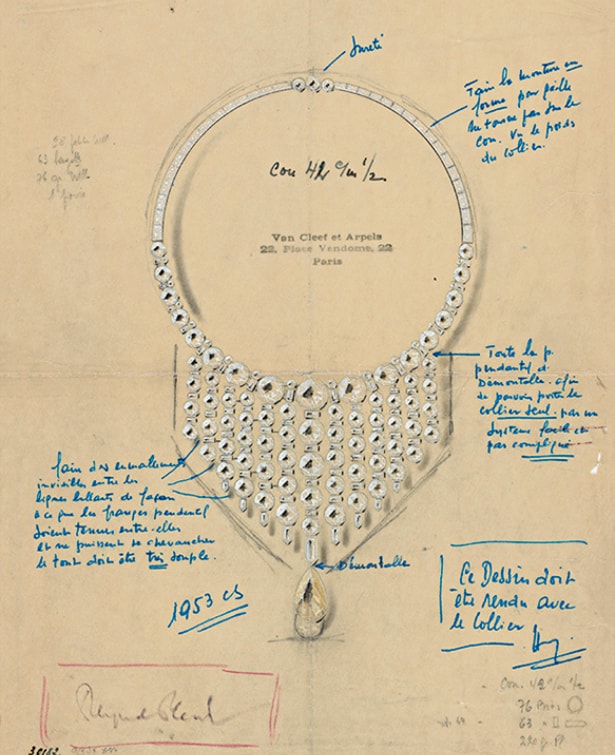 Sureté
Faire la monture en
forme pour qu'elle
ne tourne pas sur le
cou. Vu le poids
du collier.
63
76
Cou 42 c/m 1/2
Van Cleef et Arpels
22, Place Vendome, 22
Paris
Toute la p.
pendantif est
Démontable. afin
de pouvoir porter le
collier seul. par un
système facile et
pas compliqué
faire des enmaillements
invisibles entre les
lignes brillants de façon
à ce que les franges pendentif
soient tenues entre-elles
et ne puissent se chevaucher
le tout doit être très souple.
Démontable
1953 CS
Ce Dessin doit
être rendu avec
le collier
Cou. 42 c/m 1/2
76
63